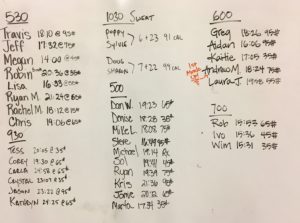 530
Travis 18:10 @ 95#
Jeff 17:32 @ 75#
Megan 14:00 @ 45#
Robin 20:36 @ 35#
Lisa 16:33 @
Ryan M. 21:24 @
Rachel M. 18:12 @
Chris 19:06 @ 65#
930
Tess 20:05 @ 35#
Corey 19:30 @ 65#
Carla
Crystal 23:07 @ 35#
Jason 23:22 @ 95#
Kathryn 24:25 @ 65#
1030 Sweat
Poppy
Sylvie 6+23 91 cal
Doug
Sharon 7+22 99 cal
500
Dan W. 19:23 65#
Denise 18:28 35#
Mike L. 17:08 75#
Steve
Michael 19:14 Rx
Sol 19:41 45#
Ryan 19:39 75#
Kris 20:36 95#
Jamie 20:12 65#
Marta 17:34 35#
600
Greg 18:26 95#
Aidan 16:06 45#
Kaitie 17:05 35#
Andrew M. 18:24 75#
Laura J. 19:58 55#
700
Rob 15:53 65#
Ivo 15:36 45#
Wim 15:31 35#